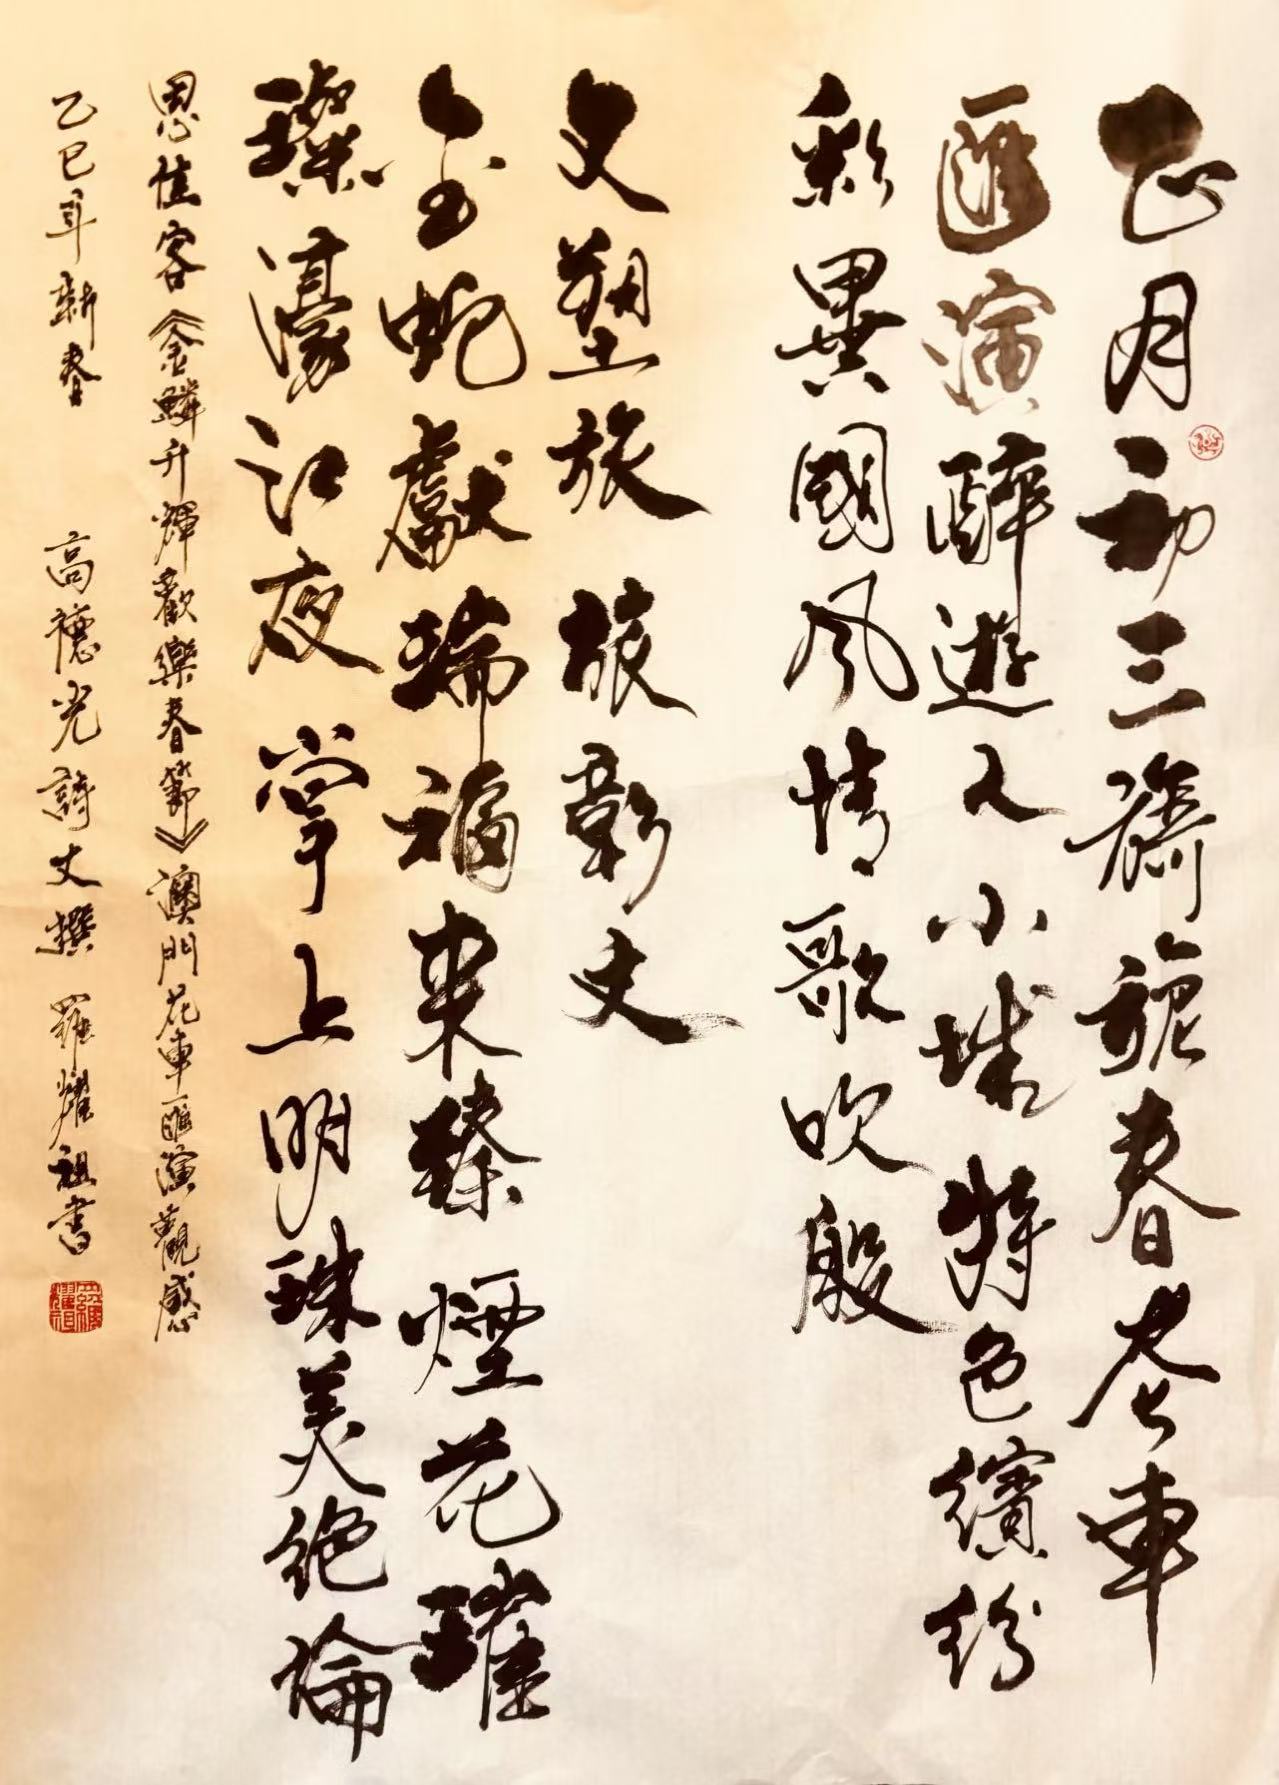 正月初三旖旎春花車
匯演醉遊人小城特色繽紛
彩異國風情歌吹殷
文塑旅旅彰文
金蛇獻瑞福來臻煙花璀
璨濠江夜掌上明珠美絕論
思佳客《金鱗升輝歡樂春節》澳門花車匯演觀感
乙巳年新春 高德光詩丈撰 羅耀祖書